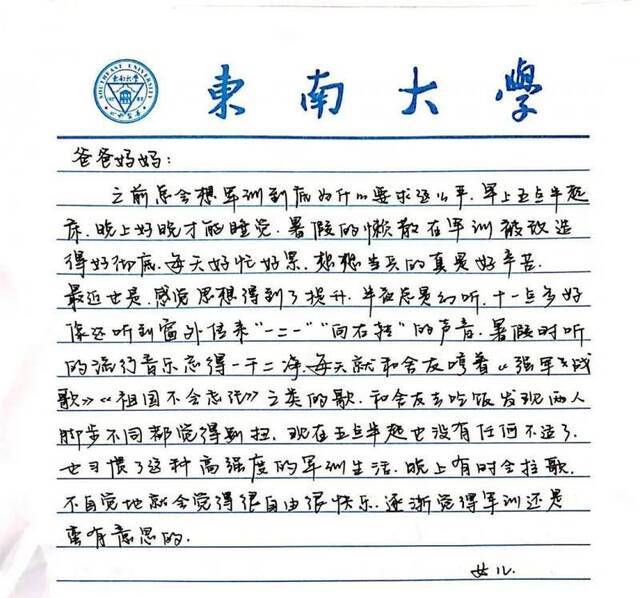 SOUTHEAST UNIVERSITY
東南大學
東南大學
爸爸妈妈:
之前总会想军训到底为什么要求这么严.早上五点半起
床.晚上好晚才能睡觉.暑假的懒散在军训被改造
得好彻底.每天好忙好累.想想当兵的真是好辛苦.
最近也是.感觉思想得到了提升.半夜总是幻听.十一点多好
像还听到窗外传来"一二一""向右转"的声音.暑假时听
的流行音乐忘得一干二净.每天就和舍友哼着《强军战
歌》《祖国不会忘记》之类的歌.和舍友去吃饭发现两人
脚步不同都觉得别扭.现在五点半起也没有任何不适了.
也习惯了这种高强度的军训生活.晚上有时会拉歌.
不自觉地就会觉得很自由很快乐.逐渐觉得军训还是
蛮有意思的.
女儿.